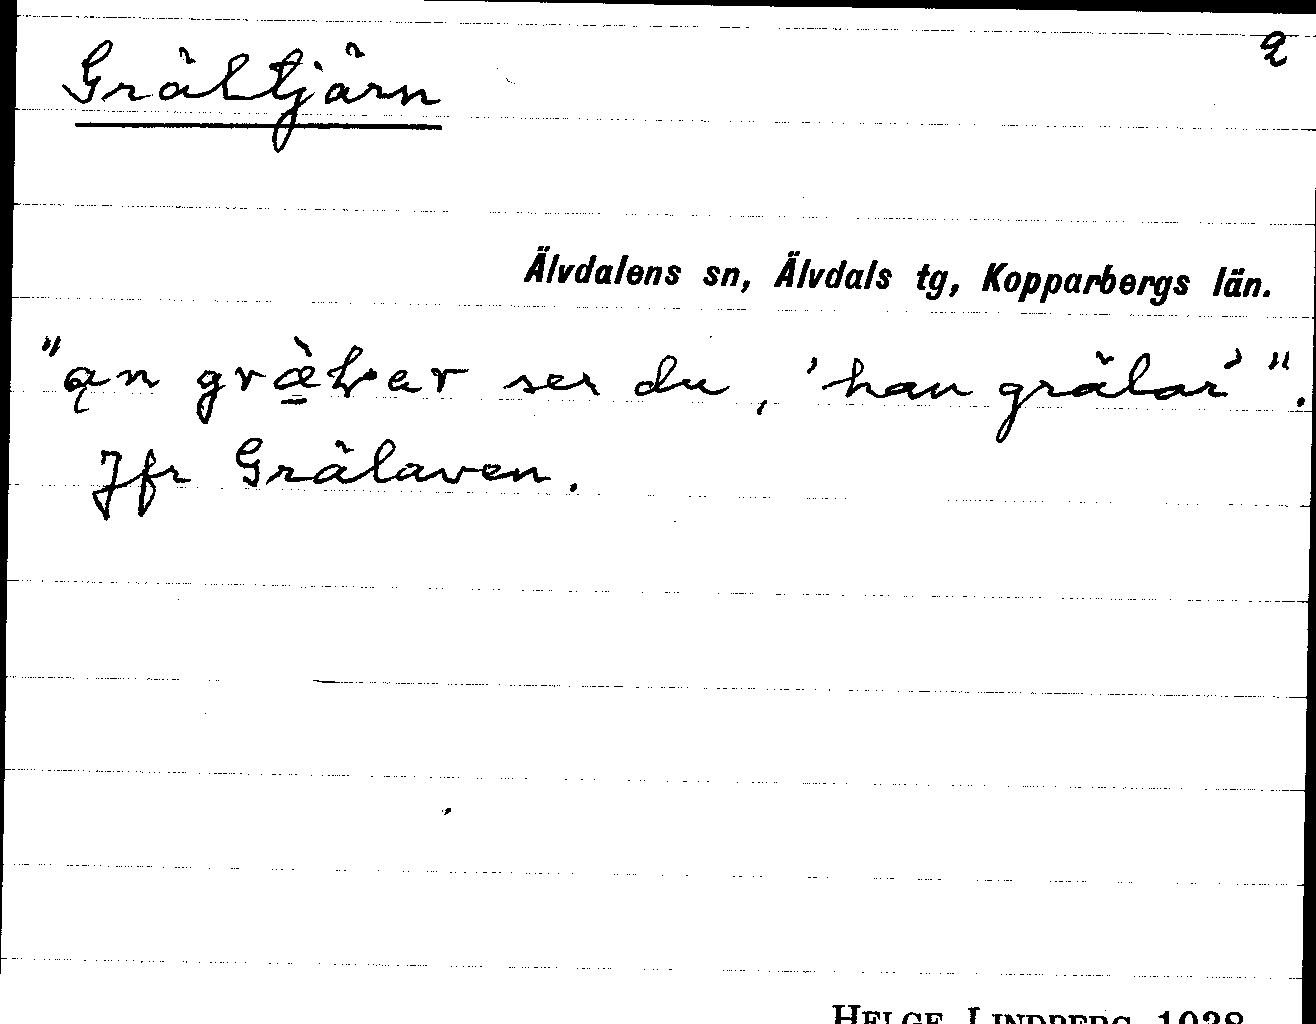 2
Grältjärn
Älvdalens sn, Älvdals tg, Kopparbergs län.
"an græ̀ƚar ser du, 'han grälar'".
Jfr Grälaven.
HELGE LINDBERG 1938